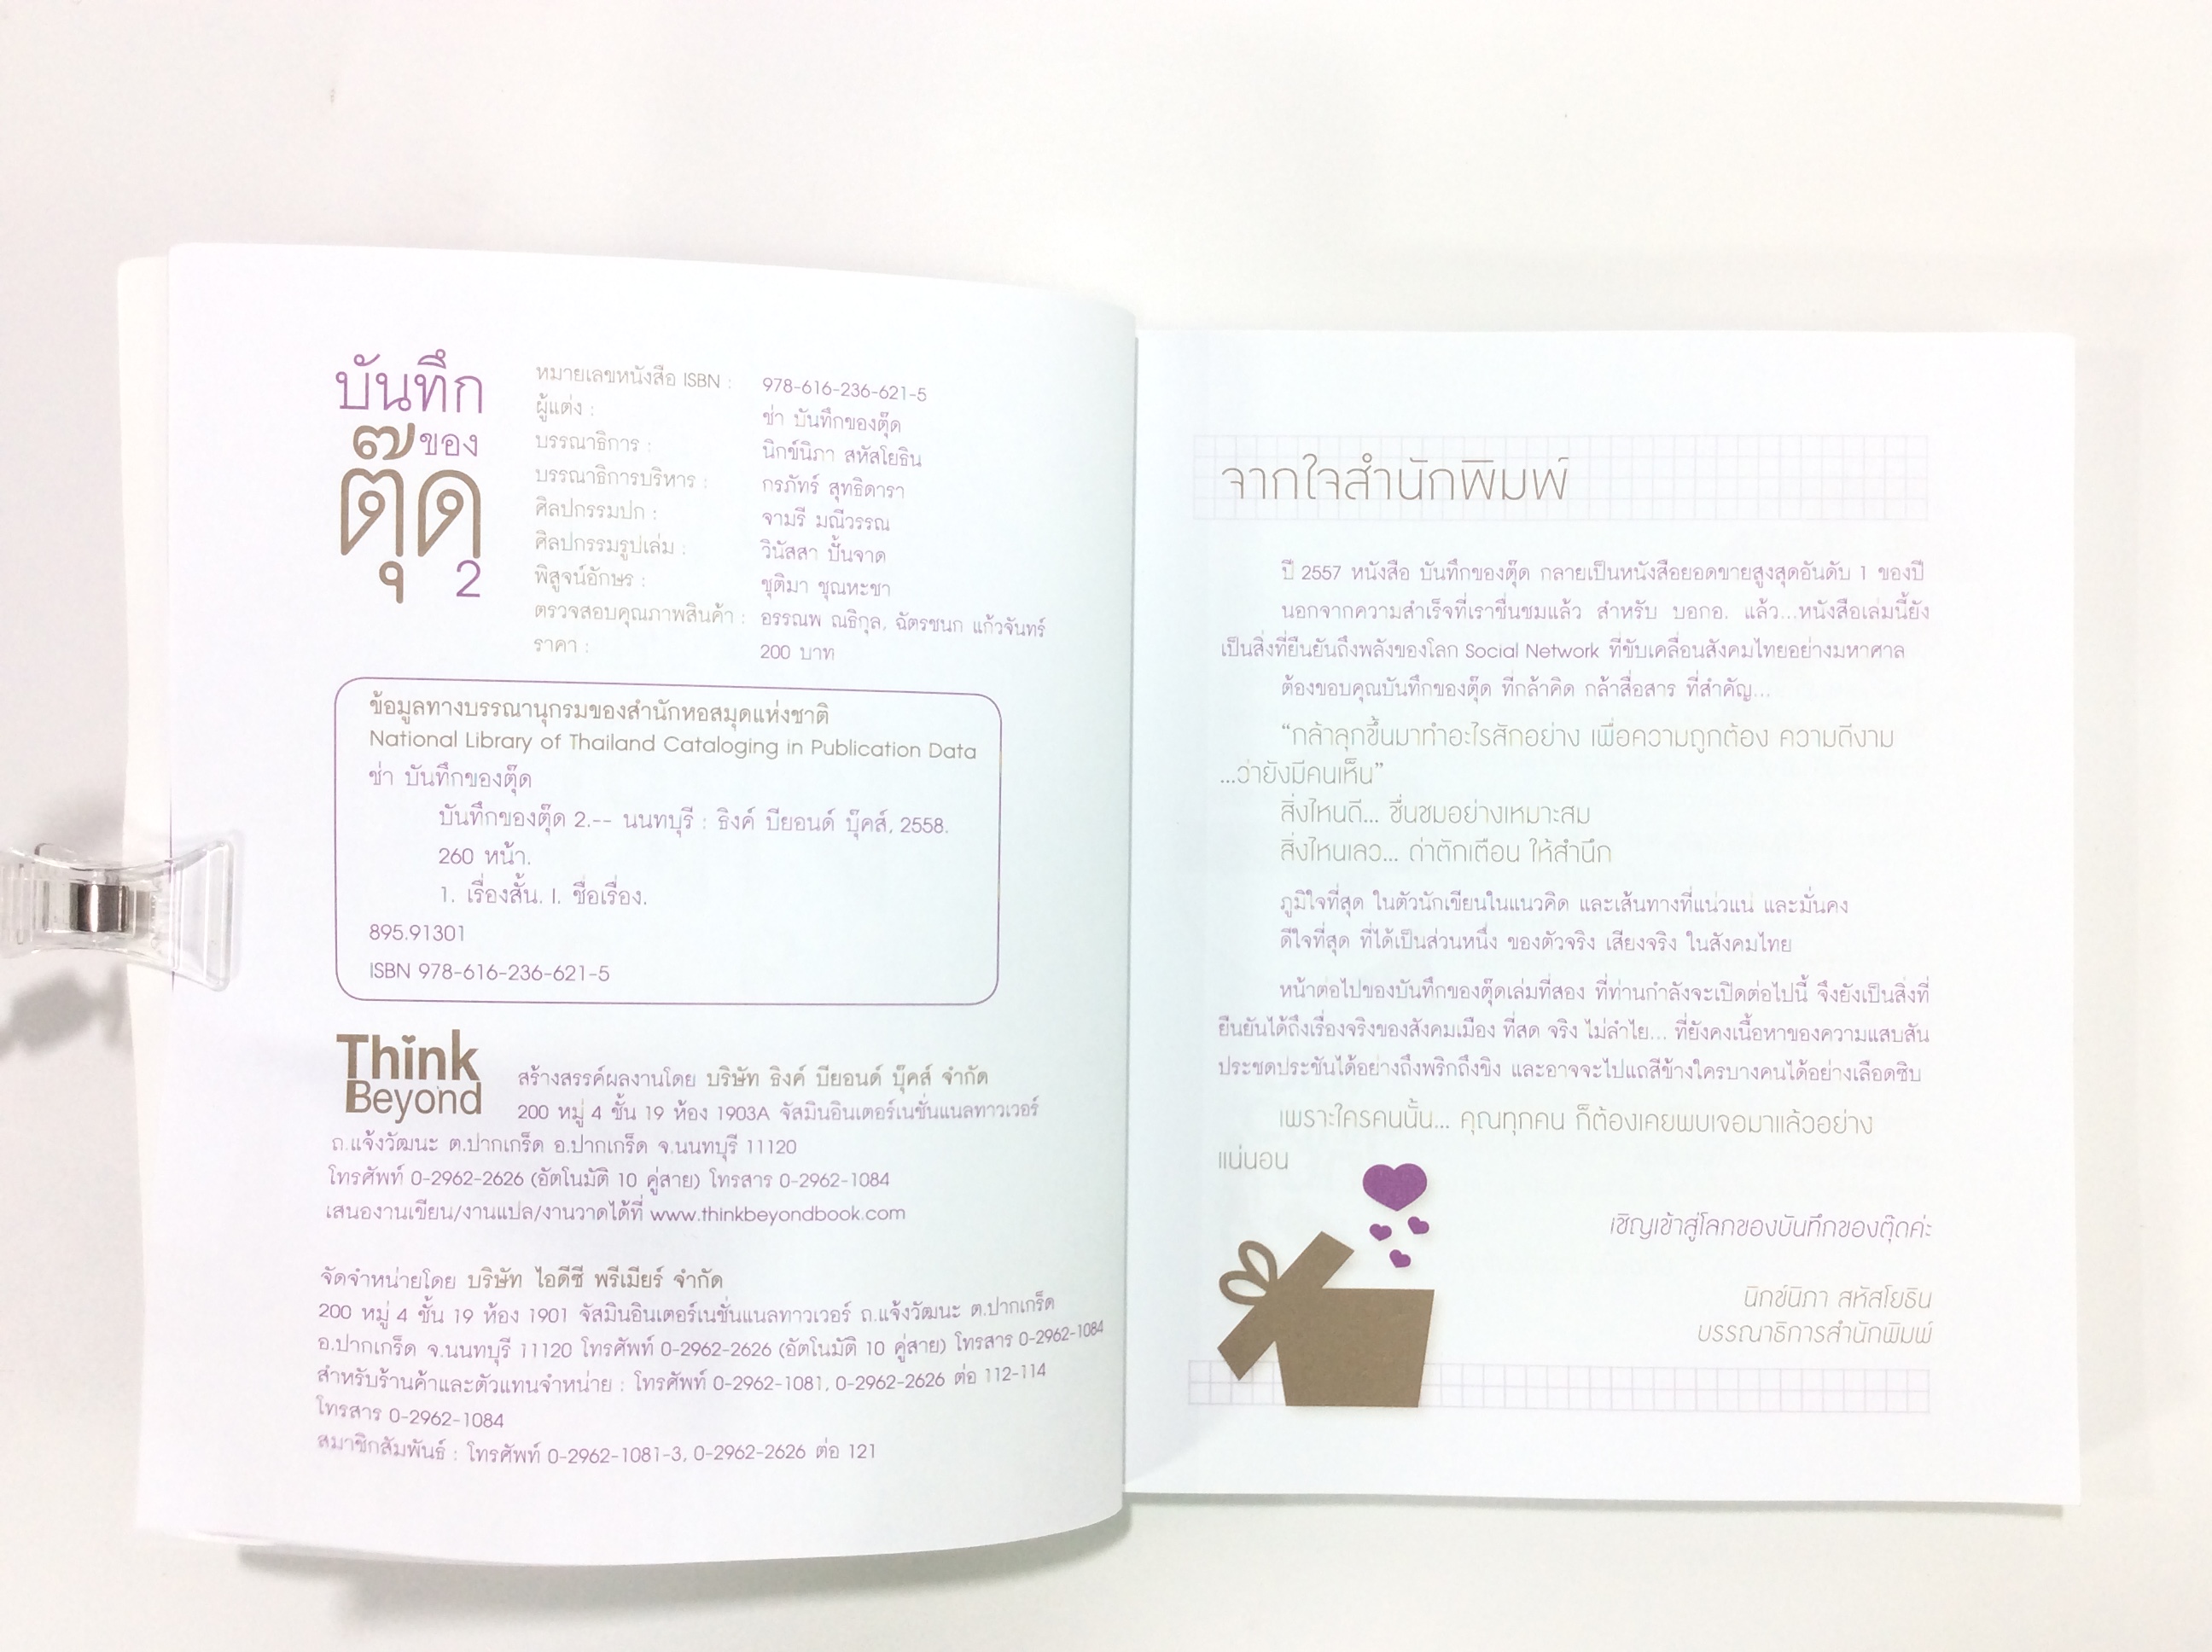 บันทึก
ของ
ตุ๊ด
2
หมายเลขหนังสือ ISBN : 978-616-236-621-5
ผู้แต่ง : ช่า บันทึกของตุ๊ด
บรรณาธิการ : นิกข์นิภา สหัสโยธิน
บรรณาธิการบริหาร : กรภัทร์ สุทธิดารา
ศิลปกรรมปก : จามรี มณีวรรณ
ศิลปกรรมรูปเล่ม : วินัสสา ปั้นจาด
พิสูจน์อักษร : ชุติมา ชุณหะชา
ตรวจสอบคุณภาพสินค้า : อรรณพ ณธิกุล, ฉัตรชนก แก้วจันทร์
ราคา : 200 บาท
ข้อมูลทางบรรณานุกรมของสำนักหอสมุดแห่งชาติ
National Library of Thailand Cataloging in Publication Data
ช่า บันทึกของตุ๊ด
บันทึกของตุ๊ด 2.-- นนทบุรี : ธิงค์ บียอนด์ บุ๊คส์, 2558.
260 หน้า.
1. เรื่องสั้น. I. ชื่อเรื่อง.
895.91301
ISBN 978-616-236-621-5
Think
Beyond
สร้างสรรค์ผลงานโดย บริษัท ธิงค์ บียอนด์ บุ๊คส์ จำกัด
200 หมู่ 4 ชั้น 19 ห้อง 1903A จัสมินอินเตอร์เนชั่นแนลทาวเวอร์
ถ.แจ้งวัฒนะ ต.ปากเกร็ด อ.ปากเกร็ด จ.นนทบุรี 11120
โทรศัพท์ 0-2962-2626 (อัตโนมัติ 10 คู่สาย) โทรสาร 0-2962-1084
เสนองานเขียน/งานแปล/งานวาดได้ที่ www.thinkbeyondbook.com
จัดจำหน่ายโดย บริษัท ไอดีซี พรีเมียร์ จำกัด
200 หมู่ 4 ชั้น 19 ห้อง 1901 จัสมินอินเตอร์เนชั่นแนลทาวเวอร์ ถ.แจ้งวัฒนะ ต.ปากเกร็ด
อ.ปากเกร็ด จ.นนทบุรี 11120 โทรศัพท์ 0-2962-2626 (อัตโนมัติ 10 คู่สาย) โทรสาร 0-2962-1084
สำหรับร้านค้าและตัวแทนจำหน่าย : โทรศัพท์ 0-2962-1081, 0-2962-2626 ต่อ 112-114
โทรสาร 0-2962-1084
สมาชิกสัมพันธ์ : โทรศัพท์ 0-2962-1081-3, 0-2962-2626 ต่อ 121
จากใจสำนักพิมพ์
ปี 2557 หนังสือ บันทึกของตุ๊ด กลายเป็นหนังสือยอดขายสูงสุดอันดับ 1 ของปี
นอกจากความสำเร็จที่เราชื่นชมแล้ว สำหรับ บอกอ. แล้ว...หนังสือเล่มนี้ยัง
เป็นสิ่งที่ยืนยันถึงพลังของโลก Social Network ที่ขับเคลื่อนสังคมไทยอย่างมหาศาล
ต้องขอบคุณบันทึกของตุ๊ด ที่กล้าคิด กล้าสื่อสาร ที่สำคัญ...
“กล้าลุกขึ้นมาทำอะไรสักอย่าง เพื่อความถูกต้อง ความดีงาม
...ว่ายังมีคนเห็น”
สิ่งไหนดี... ชื่นชมอย่างเหมาะสม
สิ่งไหนเลว... ด่าตักเตือน ให้สำนึก
ภูมิใจที่สุด ในตัวนักเขียนในแนวคิด และเส้นทางที่แน่วแน่ และมั่นคง
ดีใจที่สุด ที่ได้เป็นส่วนหนึ่ง ของตัวจริง เสียงจริง ในสังคมไทย
หน้าต่อไปของบันทึกของตุ๊ดเล่มที่สอง ที่ท่านกำลังจะเปิดต่อไปนี้ จึงยังเป็นสิ่งที่
ยืนยันได้ถึงเรื่องจริงของสังคมเมือง ที่สด จริง ไม่ลำไย... ที่ยังคงเนื้อหาของความแสบสัน
ประชดประชันได้อย่างถึงพริกถึงขิง และอาจจะไปแถสีข้างใครบางคนได้อย่างเลือดซิบ
เพราะใครคนนั้น... คุณทุกคน ก็ต้องเคยพบเจอมาแล้วอย่าง
แน่นอน
เชิญเข้าสู่โลกของบันทึกของตุ๊ดค่ะ
นิกข์นิภา สหัสโยธิน
บรรณาธิการสำนักพิมพ์